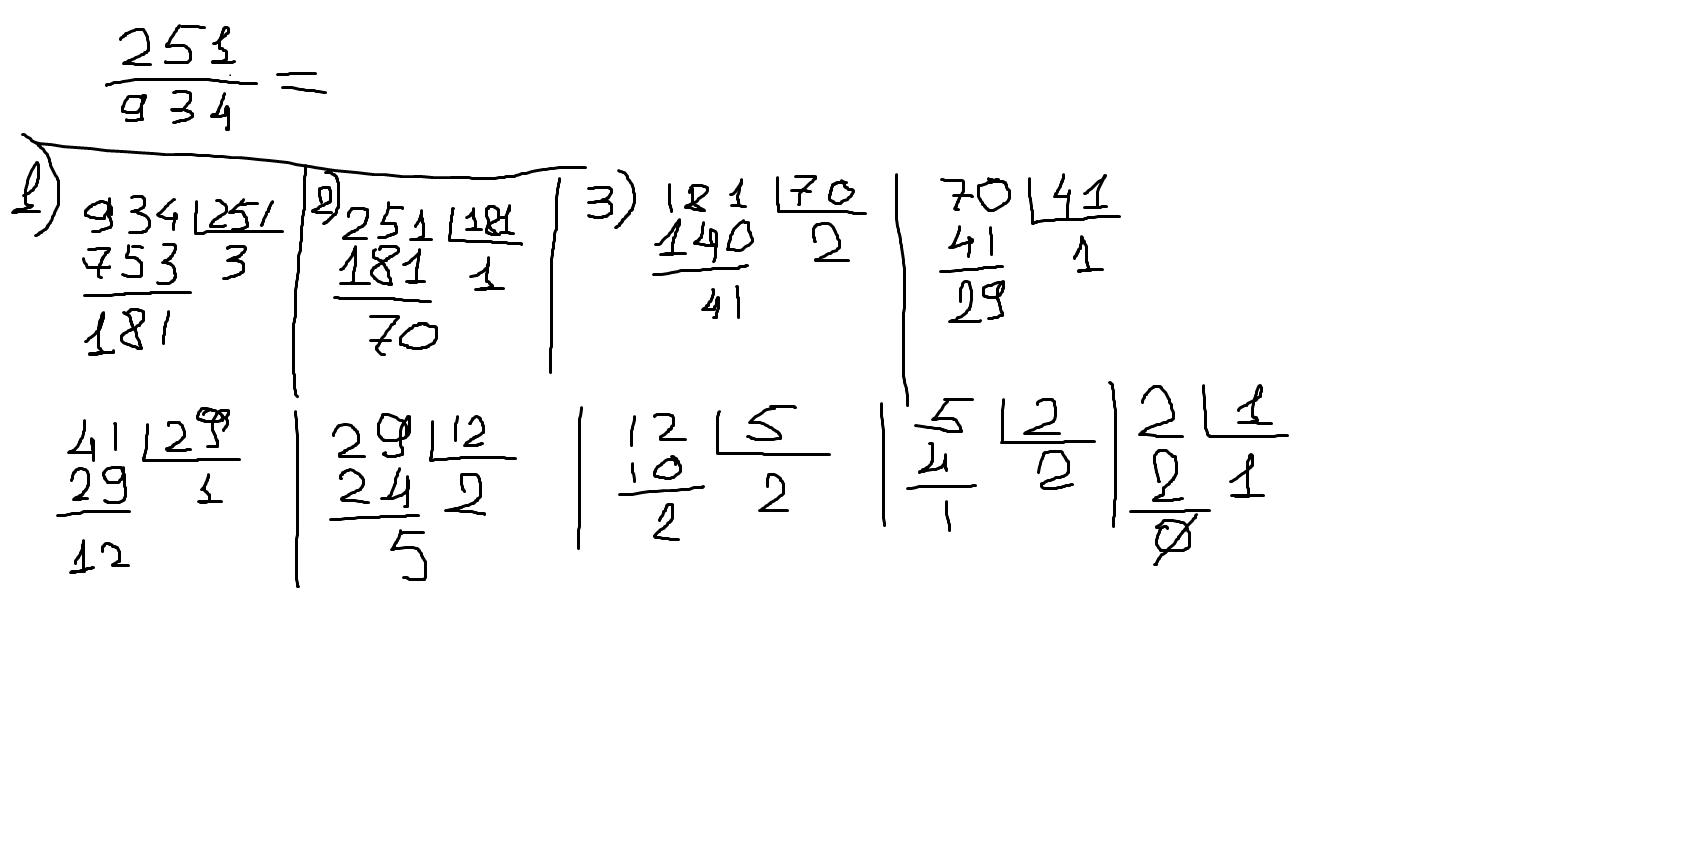 251
934 =
1) 934 251
753 3
181
2) 251 181
181 1
70
3) 181 70
140 2
41
70 41
41 1
29
41 29
29 1
12
29 12
24 2
5
12 5
10 2
2
5 2
4 2
1
2 1
2 1
0